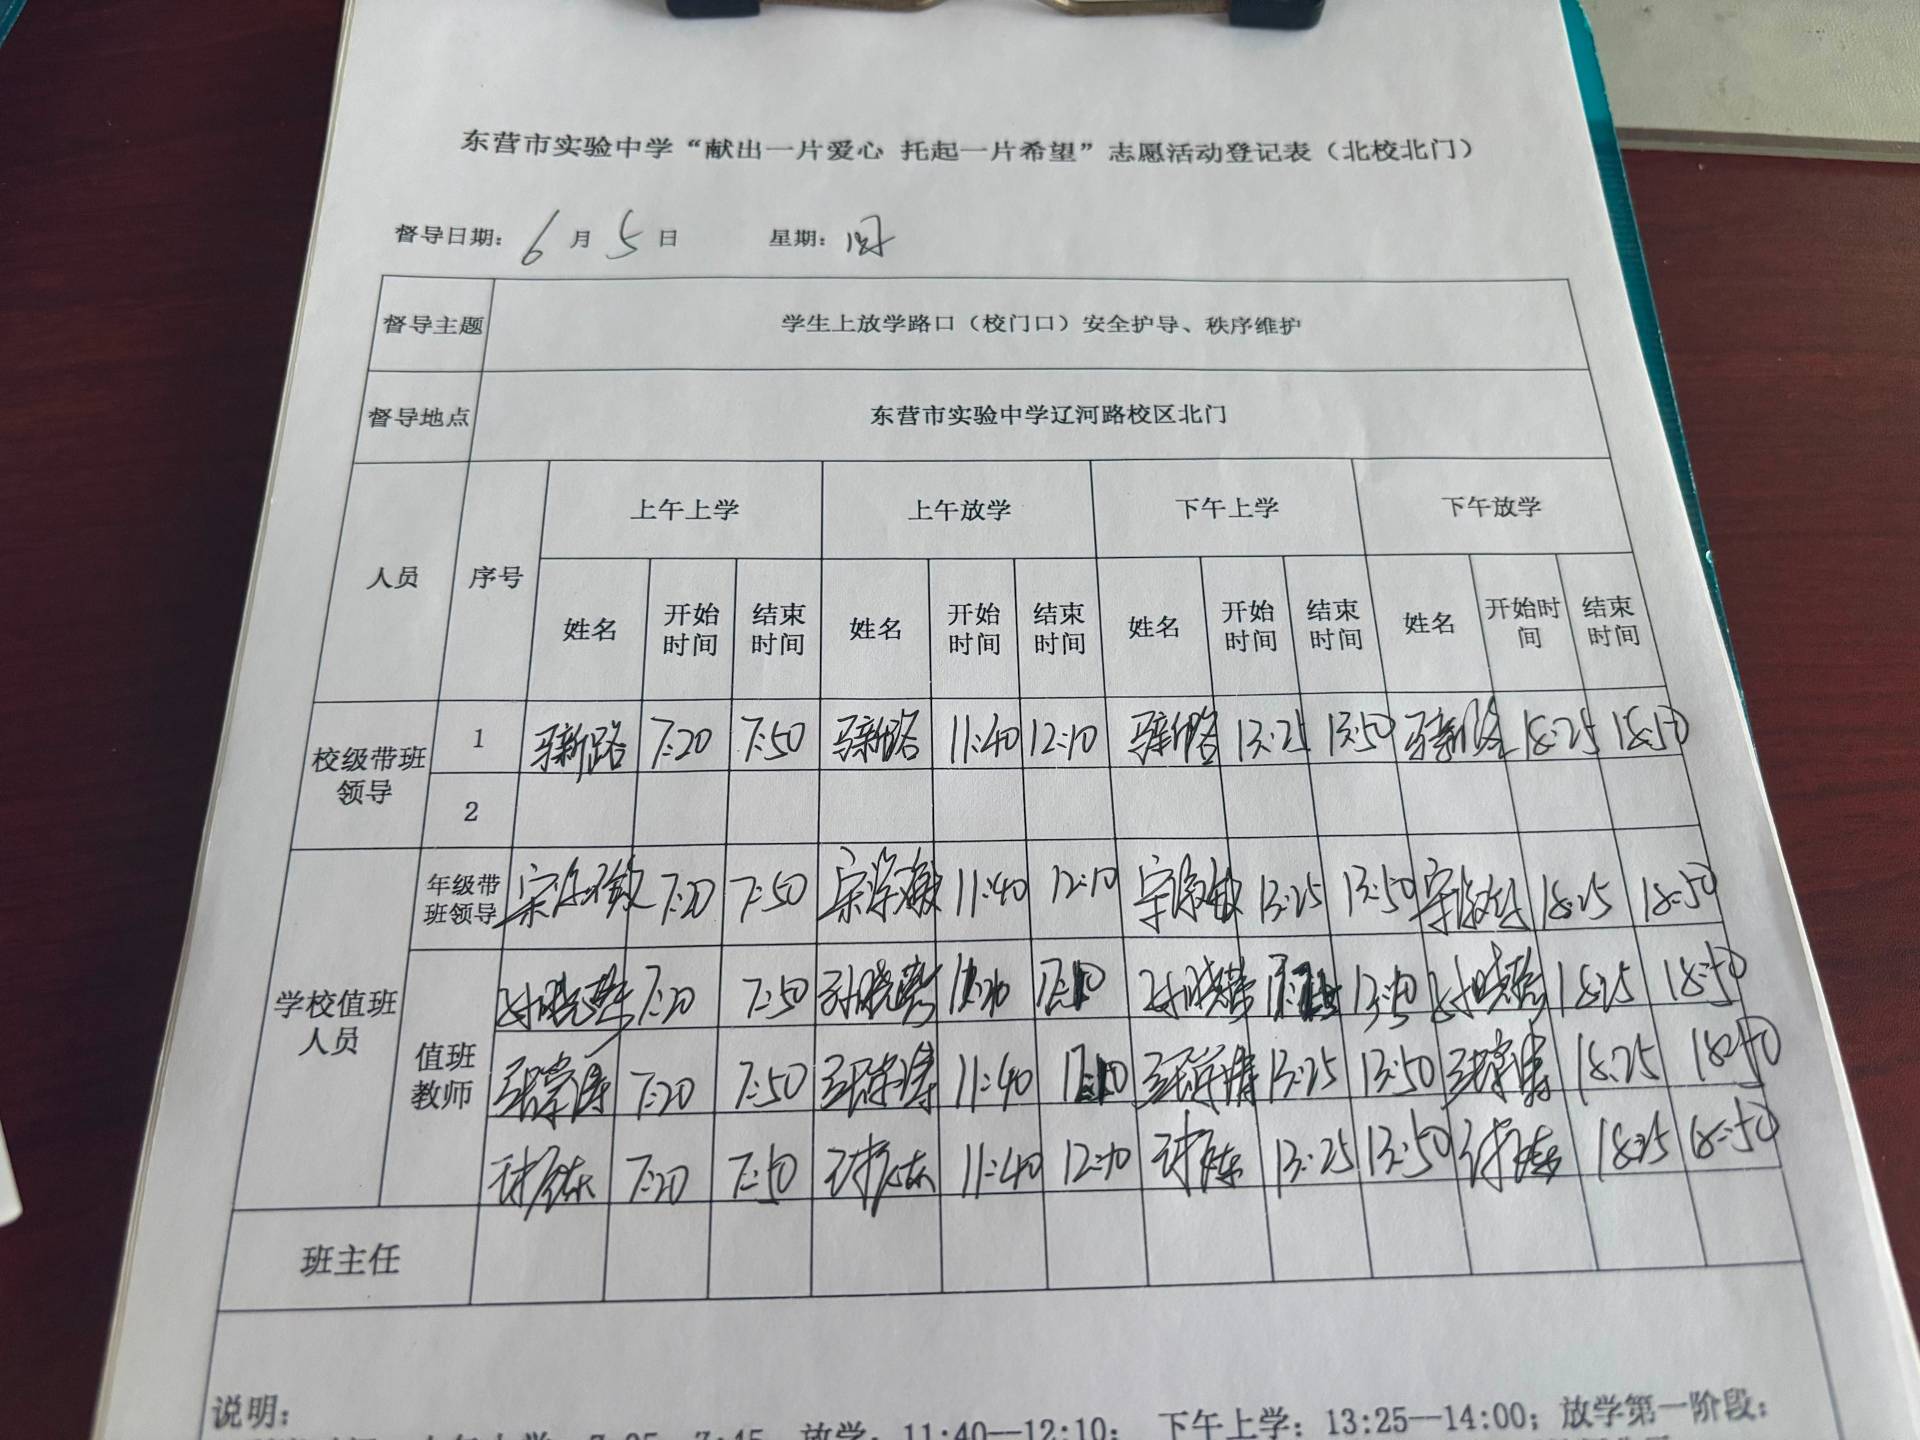 东营市实验中学“献出一片爱心 托起一片希望”志愿活动登记表（北校北门）
督导日期： 6 月 5 日 星期： 四
督导主题 学生上放学路口（校门口）安全护导、秩序维护
督导地点 东营市实验中学辽河路校区北门
人员 序号 上午上学 上午放学 下午上学 下午放学
姓名 开始时间 结束时间 姓名 开始时间 结束时间 姓名 开始时间 结束时间 姓名 开始时间 结束时间
校级带班领导 1 马新路 7:20 7:50 马新路 11:40 12:10 马新路 13:25 13:50 马新路 18:25 18:50
2
学校值班人员 年级带班领导 7:20 7:50 11:40 12:10 13:25 13:50 18:25 18:50
值班教师 7:20 7:50 13:50 18:25 18:50
7:20 7:50 11:40 13:25 13:50 18:25 18:50
7:20 7:50 11:40 12:10 13:25 13:50 18:25 18:50
班主任
说明：
放学：11:40—12:10； 下午上学：13:25—14:00；放学第一阶段：